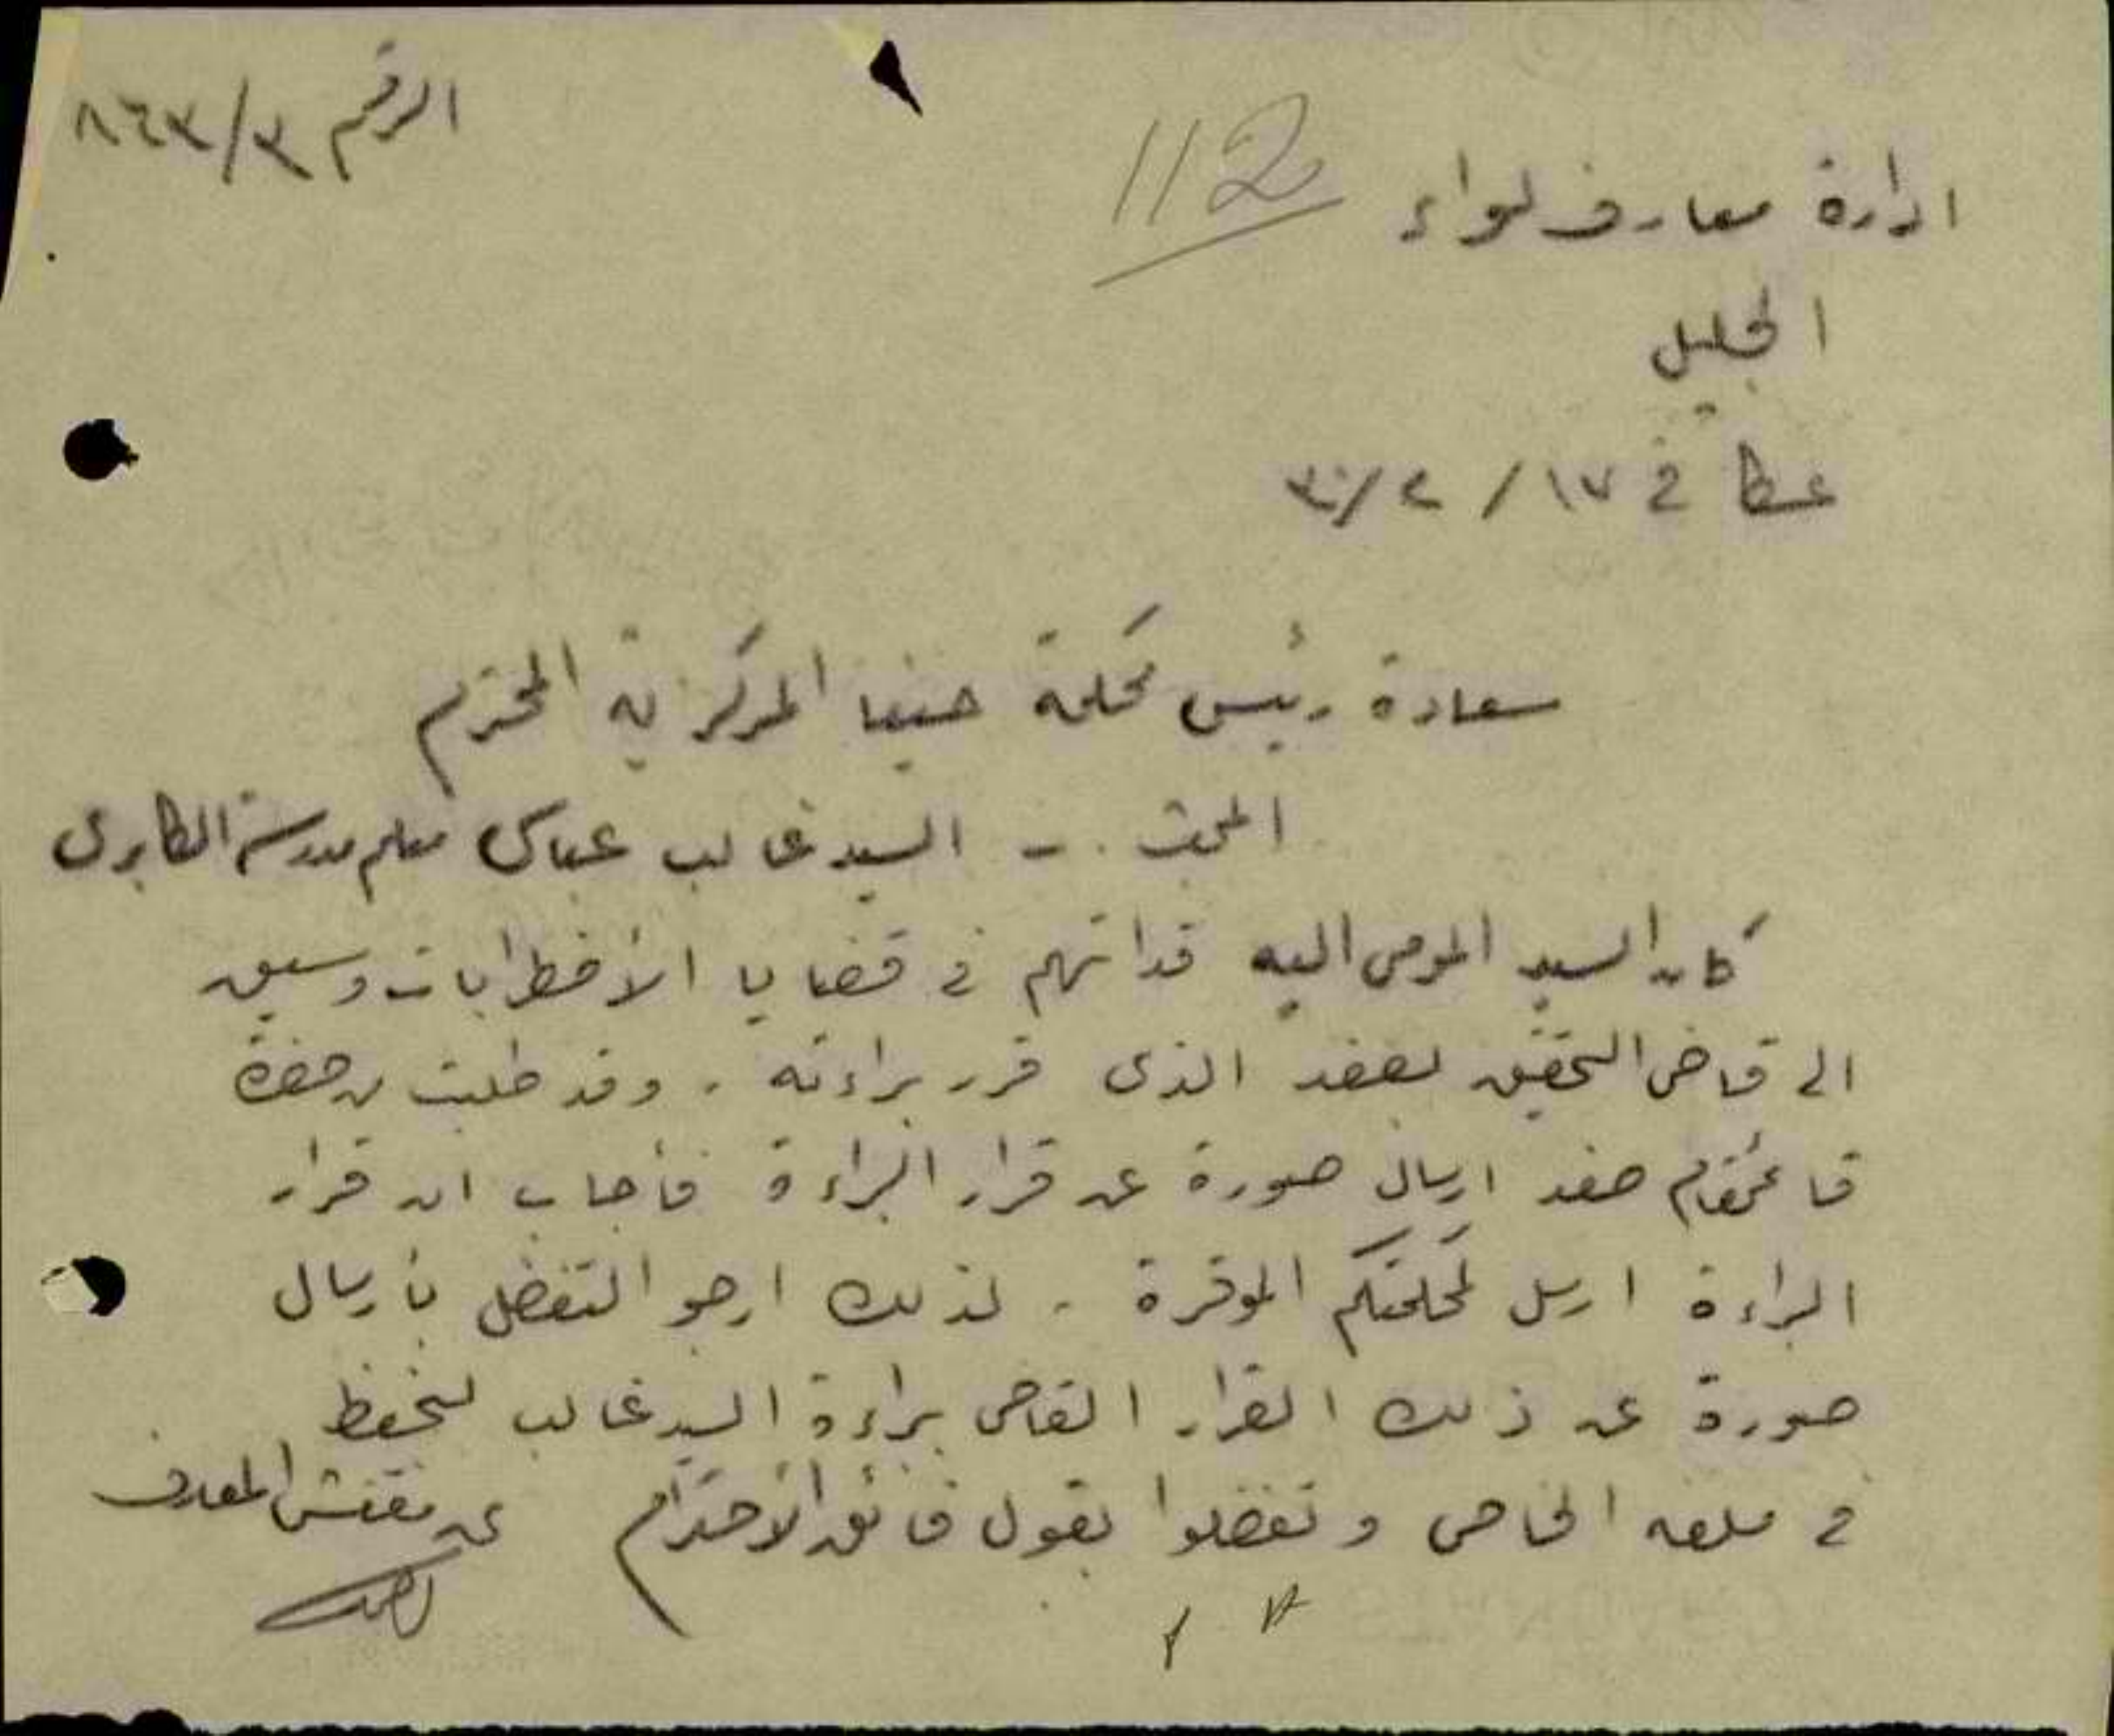 الرقم ٨٤٣/٣
112
ادارة معارف لواء
الجليل
عكا في ١٧ / ٢ / ٣٠
سعادة رئيس محكمة حيفا المركزية المحترم
المبحث .- السيد غالب عباس معلم مدرسة الكابري
كان السيد المومى اليه قد اتهم في قضايا الأضطرابات وسيق
الى قاضي التحقيق بصفد الذي قرر براءته . وقد طلبت من حضرة
قائمقام صفد ارسال صورة عن قرار البراءة فأجاب ان قرار
البراءة ارسل لمحكمتكم الموقرة . لذلك ارجو التفضل بأرسال
صورة عن ذلك القرار القاضي براءة السيد غالب لتحفظ
في ملفه الخاص وتفضلوا بقبول فائق الأحترام
عن مفتش المعارف